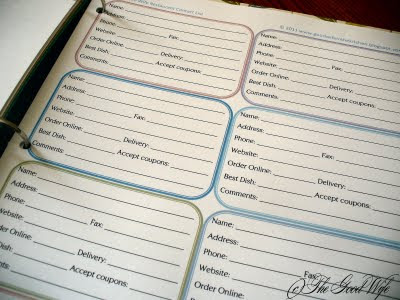 Restaurant Contact List
© 2011 www.
Name:
Address:
Phone: Fax:
Website:
Order Online: Delivery:
Best Dish:
Comments: Accept coupons:
Name:
Address:
Phone: Fax:
Website:
Order Online: Delivery:
Best Dish:
Comments: Accept coupons:
Name:
Address:
Phone: Fax:
Website:
Order Online: Delivery:
Best Dish:
Comments: Accept coupons:
Name:
Address:
Phone: Fax:
Website:
Order Online: Delivery:
Best Dish:
Comments: Accept coupons:
Name:
Address:
Phone: Fax:
Website:
Order Online: Delivery:
Dish:
Accept coupons:
Name:
Address:
Phone: Fax:
Website:
Order Online:
Best Dish:
Comments:
© The Good Wife